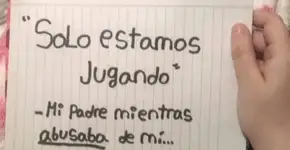 "Solo estamos
Jugando"
- Mi Padre mientras
abusaba de mí...